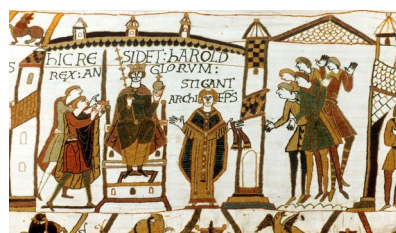 S
hIC RE SIDET: hAROLD
REX: AN GLORVM:
STIGANT
ARChI EPS